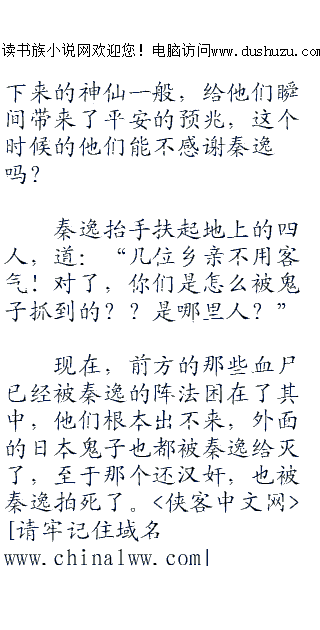 读书族小说网欢迎您！电脑访问www.dushuzu.com
下来的神仙一般，给他们瞬
间带来了平安的预兆，这个
时候的他们能不感谢秦逸
吗？
秦逸抬手扶起地上的四
人，道：“几位乡亲不用客
气！对了，你们是怎么被鬼
子抓到的？？是哪里人？”
现在，前方的那些血尸
已经被秦逸的阵法困在了其
中，他们根本出不来，外面
的日本鬼子也都被秦逸给灭
了，至于那个还汉奸，也被
秦逸拍死了。<侠客中文网>
[请牢记住域名
www.china1ww.com|